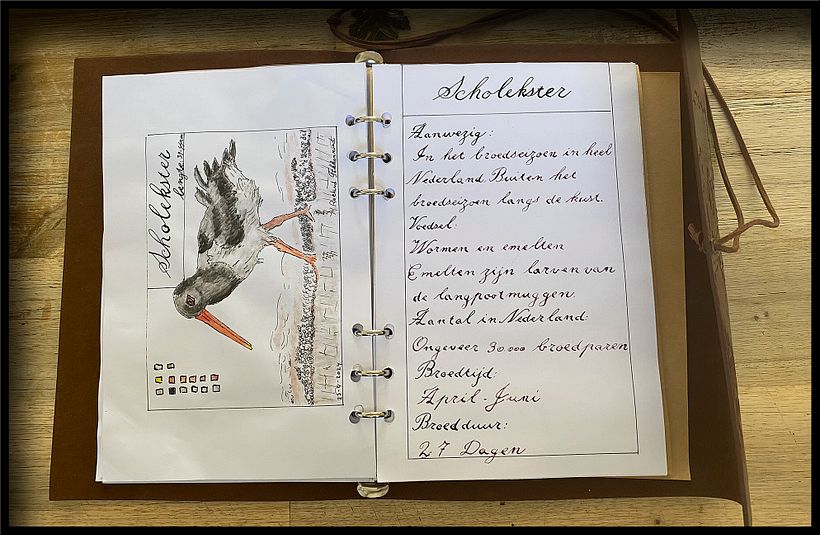 Scholekster
Lengte 43 cm
23-4-2024
Scholekster
Aanwezig:
In het broedseizoen in heel
Nederland. Buiten het
broedseizoen langs de kust.
Voedsel:
Wormen en emelten
Emelten zijn larven van
de langpootmuggen.
Aantal in Nederland:
Ongeveer 30.000 broedparen
Broedtijd:
April - Juni
Broedduur:
27 Dagen